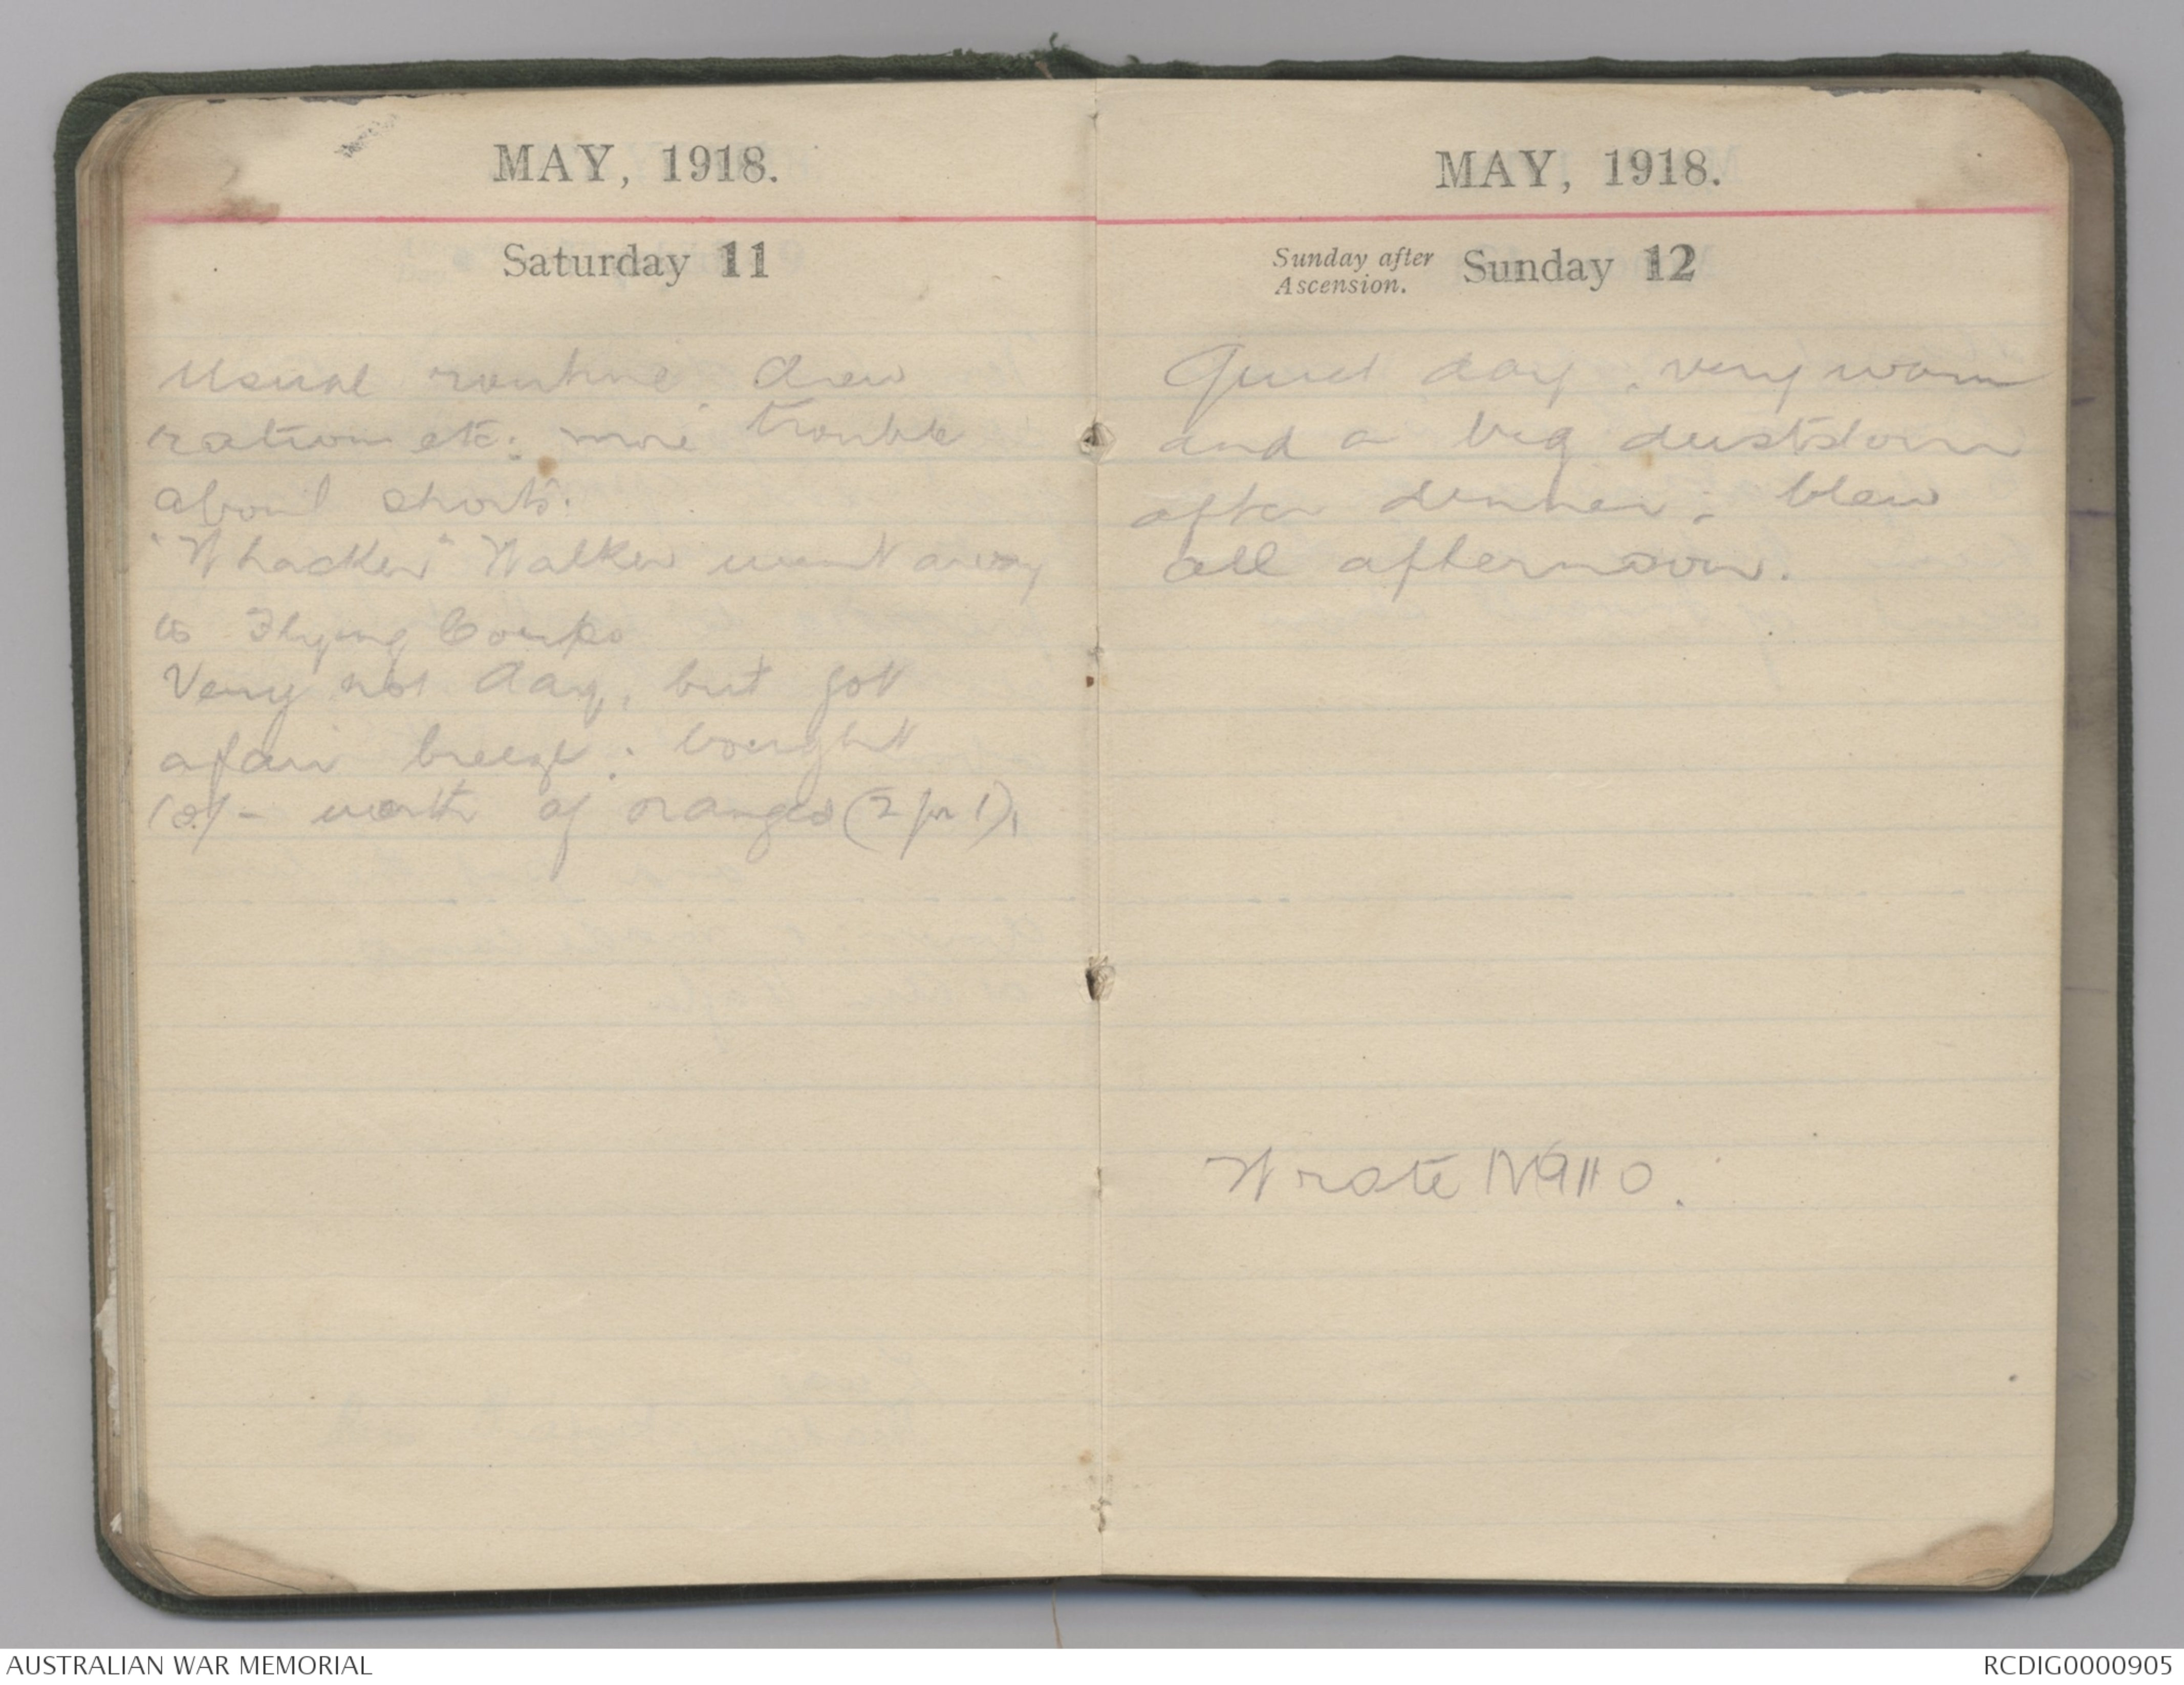 MAY, 1918.
Saturday 11
Usual routine. drew
rations etc: more trouble
about shorts.
"Whacker" Walker went away
to Flying Corps
Very hot day, but got
a fair breeze: bought
worth of oranges (2 for 1),
MAY, 1918.
Sunday after Ascension. Sunday 12
Quiet day, very warm
and a big duststorm
after dinner; blew
all afternoon.
Wrote
AUSTRALIAN WAR MEMORIAL
RCDIG0000905